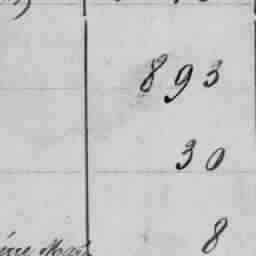 893
30
8